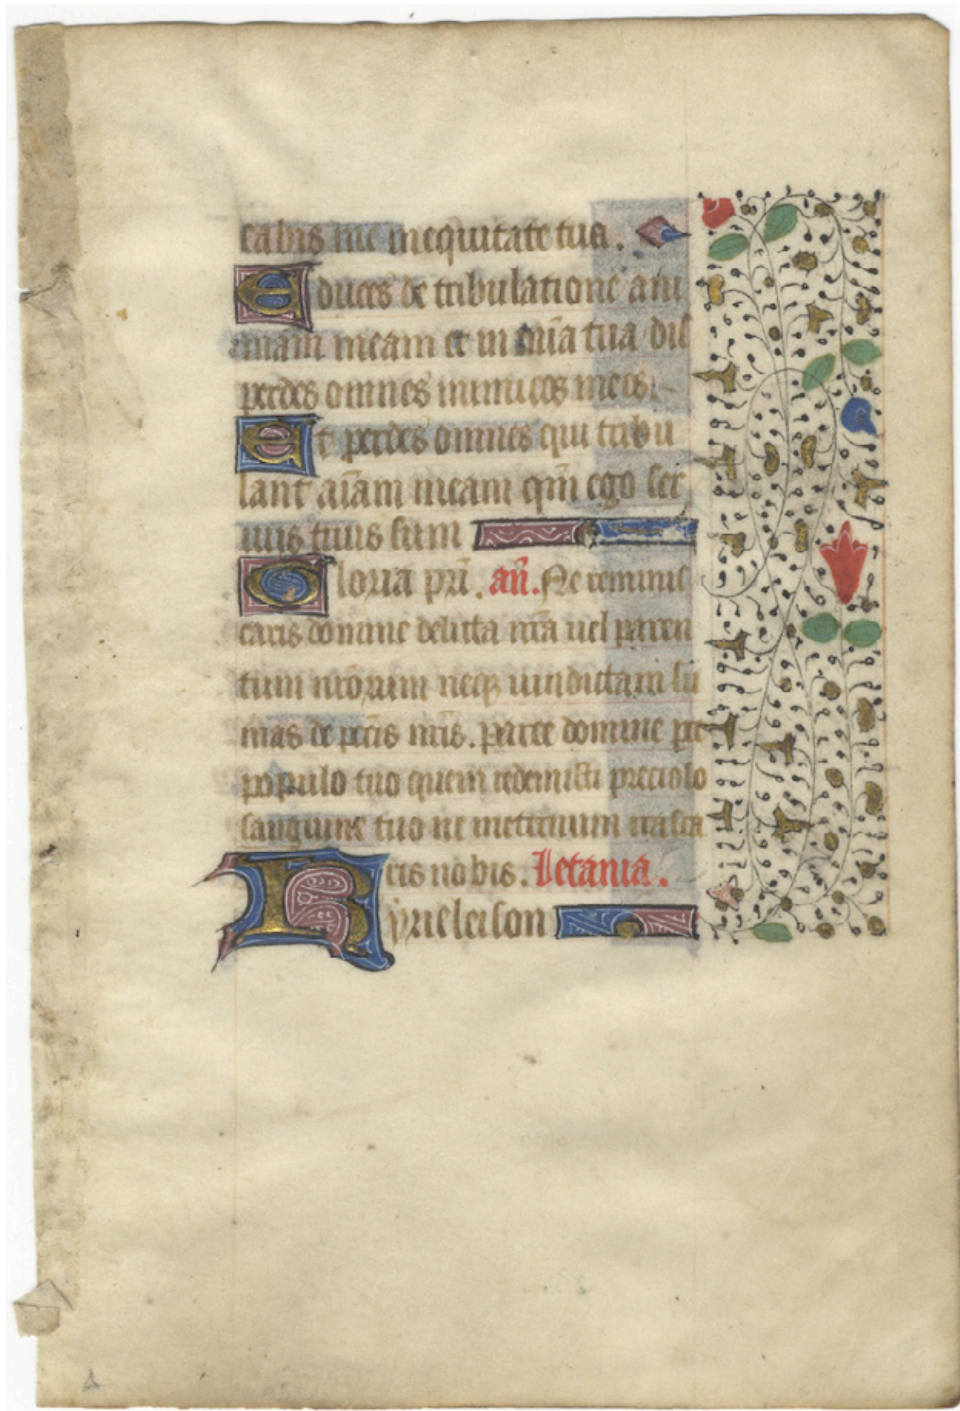 cabis me in equitate tua.
Educes de tribulatione ani
mam meam et in mīa tua dis
perdes omnes inimicos meos.
Et perdes omnes qui tribu
lant aīam meam qm̄ ego ser
uus tuus sum
Gloria pri. an̄. Ne reminis
caris domine delicta nr̄a uel paren
tum nr̄orum neqꝫ uindictam su
mas de pctīs nr̄is. parce domine pͤ
populo tuo quem redemisti precioso
sanguine tuo ne ineternum irasca
ris nobis. Letania.
Kyrieleison